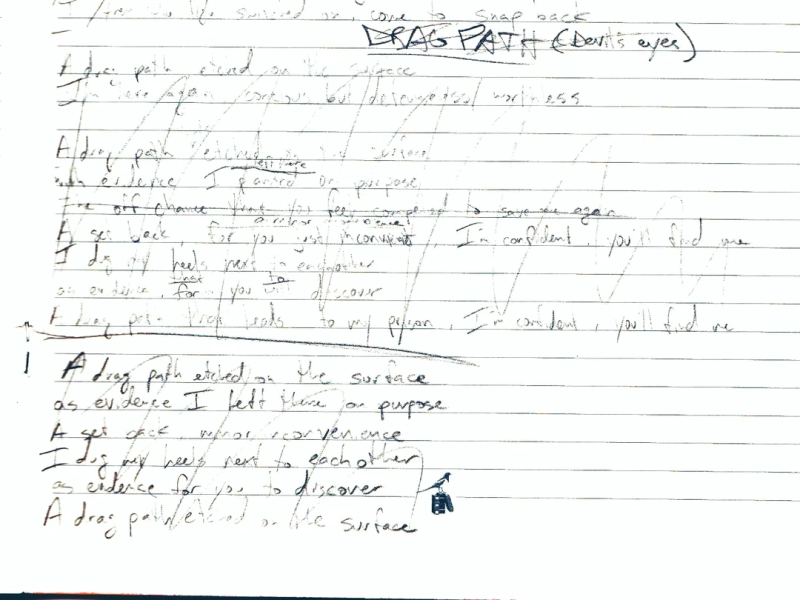 come to snap back
DRAG PATH (Devil's eyes)
A drag path etched on the surface
I'm here again but worthless
A drag path etched on the surface
left there
evidence I planted on purpose
off chance that you feel compelled to save me again
a minor inconvenience
A set back, for you just inconvenient, I'm confident, you'll find me
I dig my heels next to eachother
what to
as evidence, for you will discover
A drag path that leads to my prison, I'm confident, you'll find me
A drag path etched on the surface
as evidence I left there on purpose
A set back, minor inconvenience
I dug my heels next to each other
as evidence for you to discover
A drag path etched on the surface